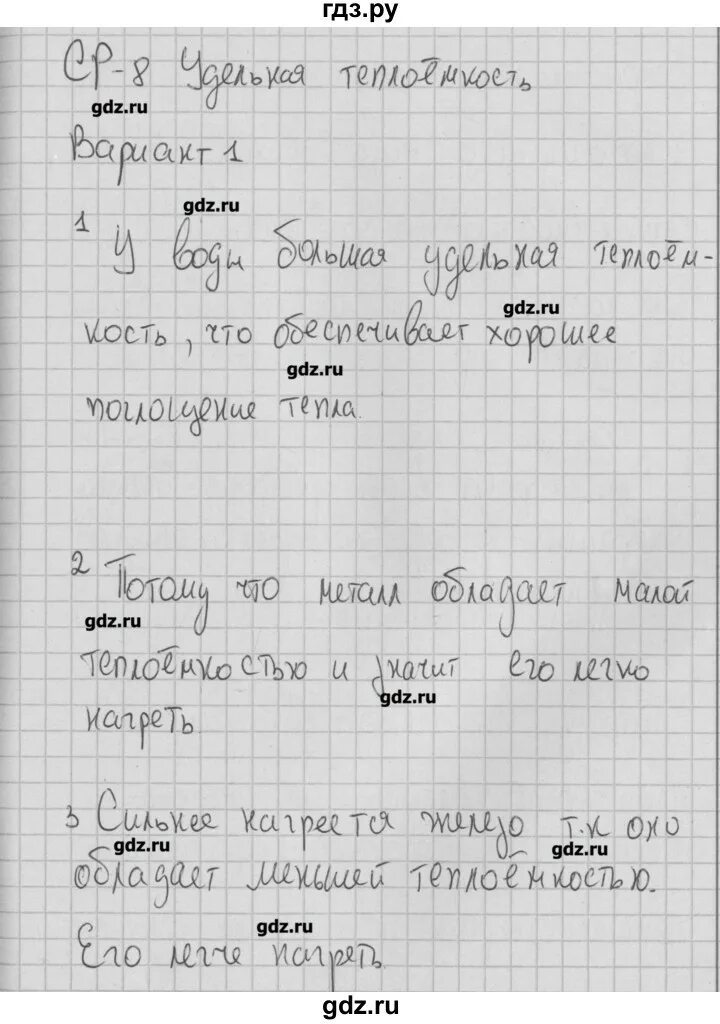 гдз.ру
СР-8 Удельная теплоёмкость
gdz.ru
Вариант 1
gdz.ru
1 У воды большая удельная теплоём-
gdz.ru
кость, что обеспечивает хорошее
gdz.ru
поглощение тепла.
2 Потому что металл обладает малой
gdz.ru
теплоёмкостью и значит его легко
gdz.ru
нагреть.
3 Сильнее нагреется железо т.к оно
gdz.ru
gdz.ru
обладает меньшей теплоёмкостью.
gdz.ru
Его легче нагреть.
gdz.ru